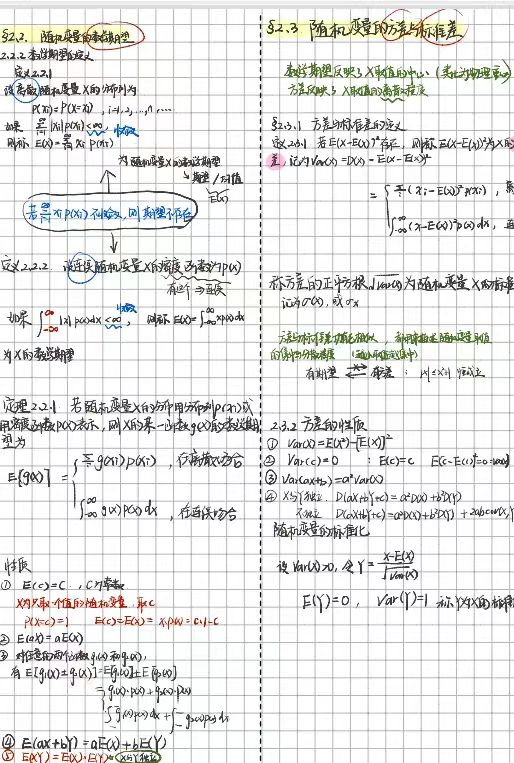 §2.2. 随机变量的数学期望
2.2.2 数学期望的定义
定义2.2.1
设离散随机变量X的分布列为
P(xi)=P(X=xi), i=1,2,…,n,…
如果 ∑|xi|p(xi)<∞ 收敛
则称 E(X)=∑xi p(xi)
为随机变量X的数学期望
期望/均值
E(X)
若∑xi p(xi)不收敛,则期望不存在
定义2.2.2 设连续随机变量X的密度函数为p(x)
如果 ∫|x|p(x)dx<∞ 收敛, 则称 E(X)=∫xp(x)dx
为X的数学期望
定理2.2.1 若随机变量X的分布用分布列p(xi)或
用密度函数p(x)表示,则X的某一函数g(X)的数学期
望为
E[g(X)]= ∑g(xi)p(xi), 在离散场合
∫g(x)p(x)dx, 在连续场合
性质
① E(c)=C, C为常数
X为只取一个值的随机变量,取C
P(X=c)=1 E(c)=E(X)=x₁p(x₁)=c·1=C
② E(aX)=aE(X)
③ 对任意的两个函数g₁(x)和g₂(x),
有 E[g₁(X)±g₂(X)]=E[g₁(X)]±E[g₂(X)]
④ E(aX+bY)=aE(X)+bE(Y)
⑤ E(XY)=E(X)·E(Y) X与Y独立
§2.3 随机变量的方差与标准差
数学期望反映了X取值的中心
方差反映了X取值的离散程度
§2.3.1 方差与标准差的定义
定义2.3.1 若E(X-E(X))²存在,则称E(X-E(X))²为X的
差 记为Var(X)=D(X)=E(X-E(X))²
= ∑(xi-E(X))²p(xi),
∫(x-E(X))²p(x)dx,
称方差的正平方根√Var(X)为随机变量X的标准
记为σ(X),或σx
有期望 方差 : |x|≤x²+1 恒成立
2.3.2 方差的性质
① Var(X)=E(X²)-[E(X)]²
② Var(c)=0 : E(c)=c
③ Var(ax+b)=a²Var(X)
④ X与Y独立 D(aX+bY+c)=a²D(X)+b²D(Y)
不独立 D(aX+bY+c)=a²D(X)+b²D(Y)+2abcov(X,Y
随机变量的标准化
设Var(X)>0,令Y=X-E(X)/√Var(X)
E(Y)=0, Var(Y)=1 称Y为X的标准